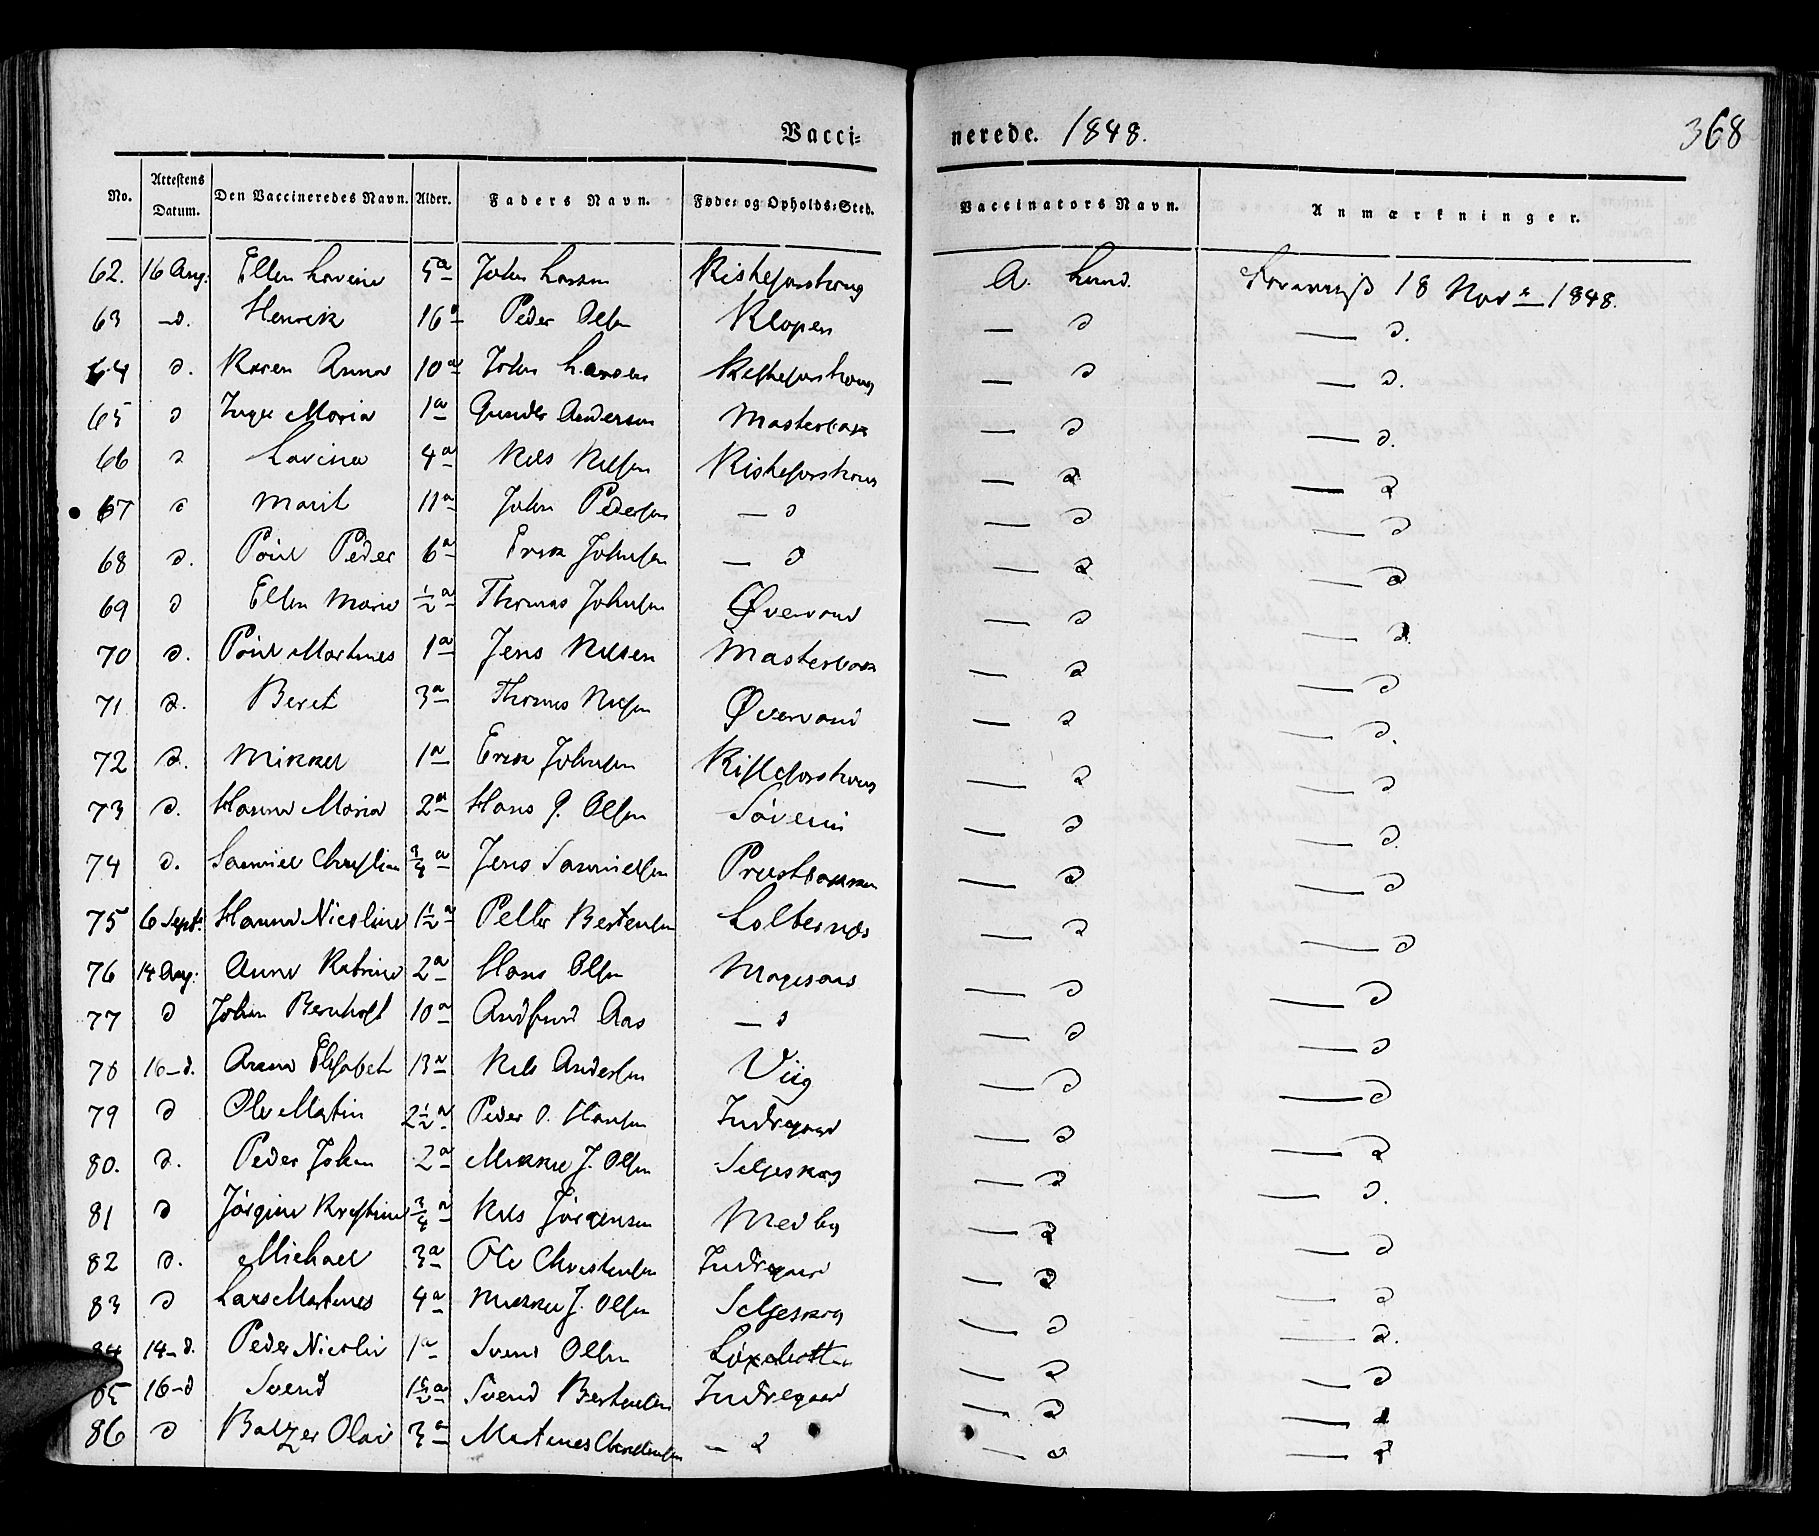 Vacci= nerede. 1848. 368
No. Attestens Datum. Den Vaccineredes Navn. Alder. Faders Navn. Føde= og Opholds=Sted. Vaccinators Navn. Anmærkninger.
62. 16 Aug. Ellen Lovine 5a John Larsen A. Lund. 18 Nov. 1848.
63 — d. Henrik 16a Peder Olsen Klopen — d — d.
64 d. Karen Anna 10a John Larsen — d — d.
65 d Inger Maria 1a Gunder Anderson Masterbak — d — d.
66 d Lovina 4a Nils Nilsen — d — d
67 d Marit 11a John Pedersen — d — d — d
68 d. Poul Peder 6a Erik Johnsen — d — d — d
69 d Ellen Marie ½a Thomas Johnsen Øvervand — d — d
70 d. Poul Martines 1a Jens Nilsen Masterbak — d — d
71 d. Beret 3a Thomas Nilsen Øvervand — d — d.
72 d. Mikkel 1a Erik Johnsen — d — d
73 d. Hanna Maria 2a Hans P. Olsen — d — d
74 d. Samuel Christian ¾a Jens Samuelsen Prestbakken — d — d
75 6 Sept. Hanna Nicoline 1½a Petter Bertensen — d — d
76 14 Aug: Anne Katrine 2a Hans Olsen — d — d
77 d Johan Bernhoft 10a Andfind Aas — d — d — d
78 16 — d. Elisabet 13a Nils Andersen Viig — d — d
79 d Ole Martin 2½a Peder O. Hansen Indregaard — d — d
80. d. Peder Johan 2a Mikkel J. Olsen Seljeskog — d — d.
81 d Jørgine Kristine ¾a Nils Jørgensen Medby — d — d
82 d. Michael 3a Ole Christensen Indregaard — d — d
83 d Lars Martines 4a Mikkel J. Olsen Seljeskog — d — d.
84 14 — d. Peder Nicolai 1a Svend Olsen — d — d
85 16 — d Svend 1½a Svend Bertensen Indregaard — d — d
86 d Baltzer Olai 3a Martines — d — d — d